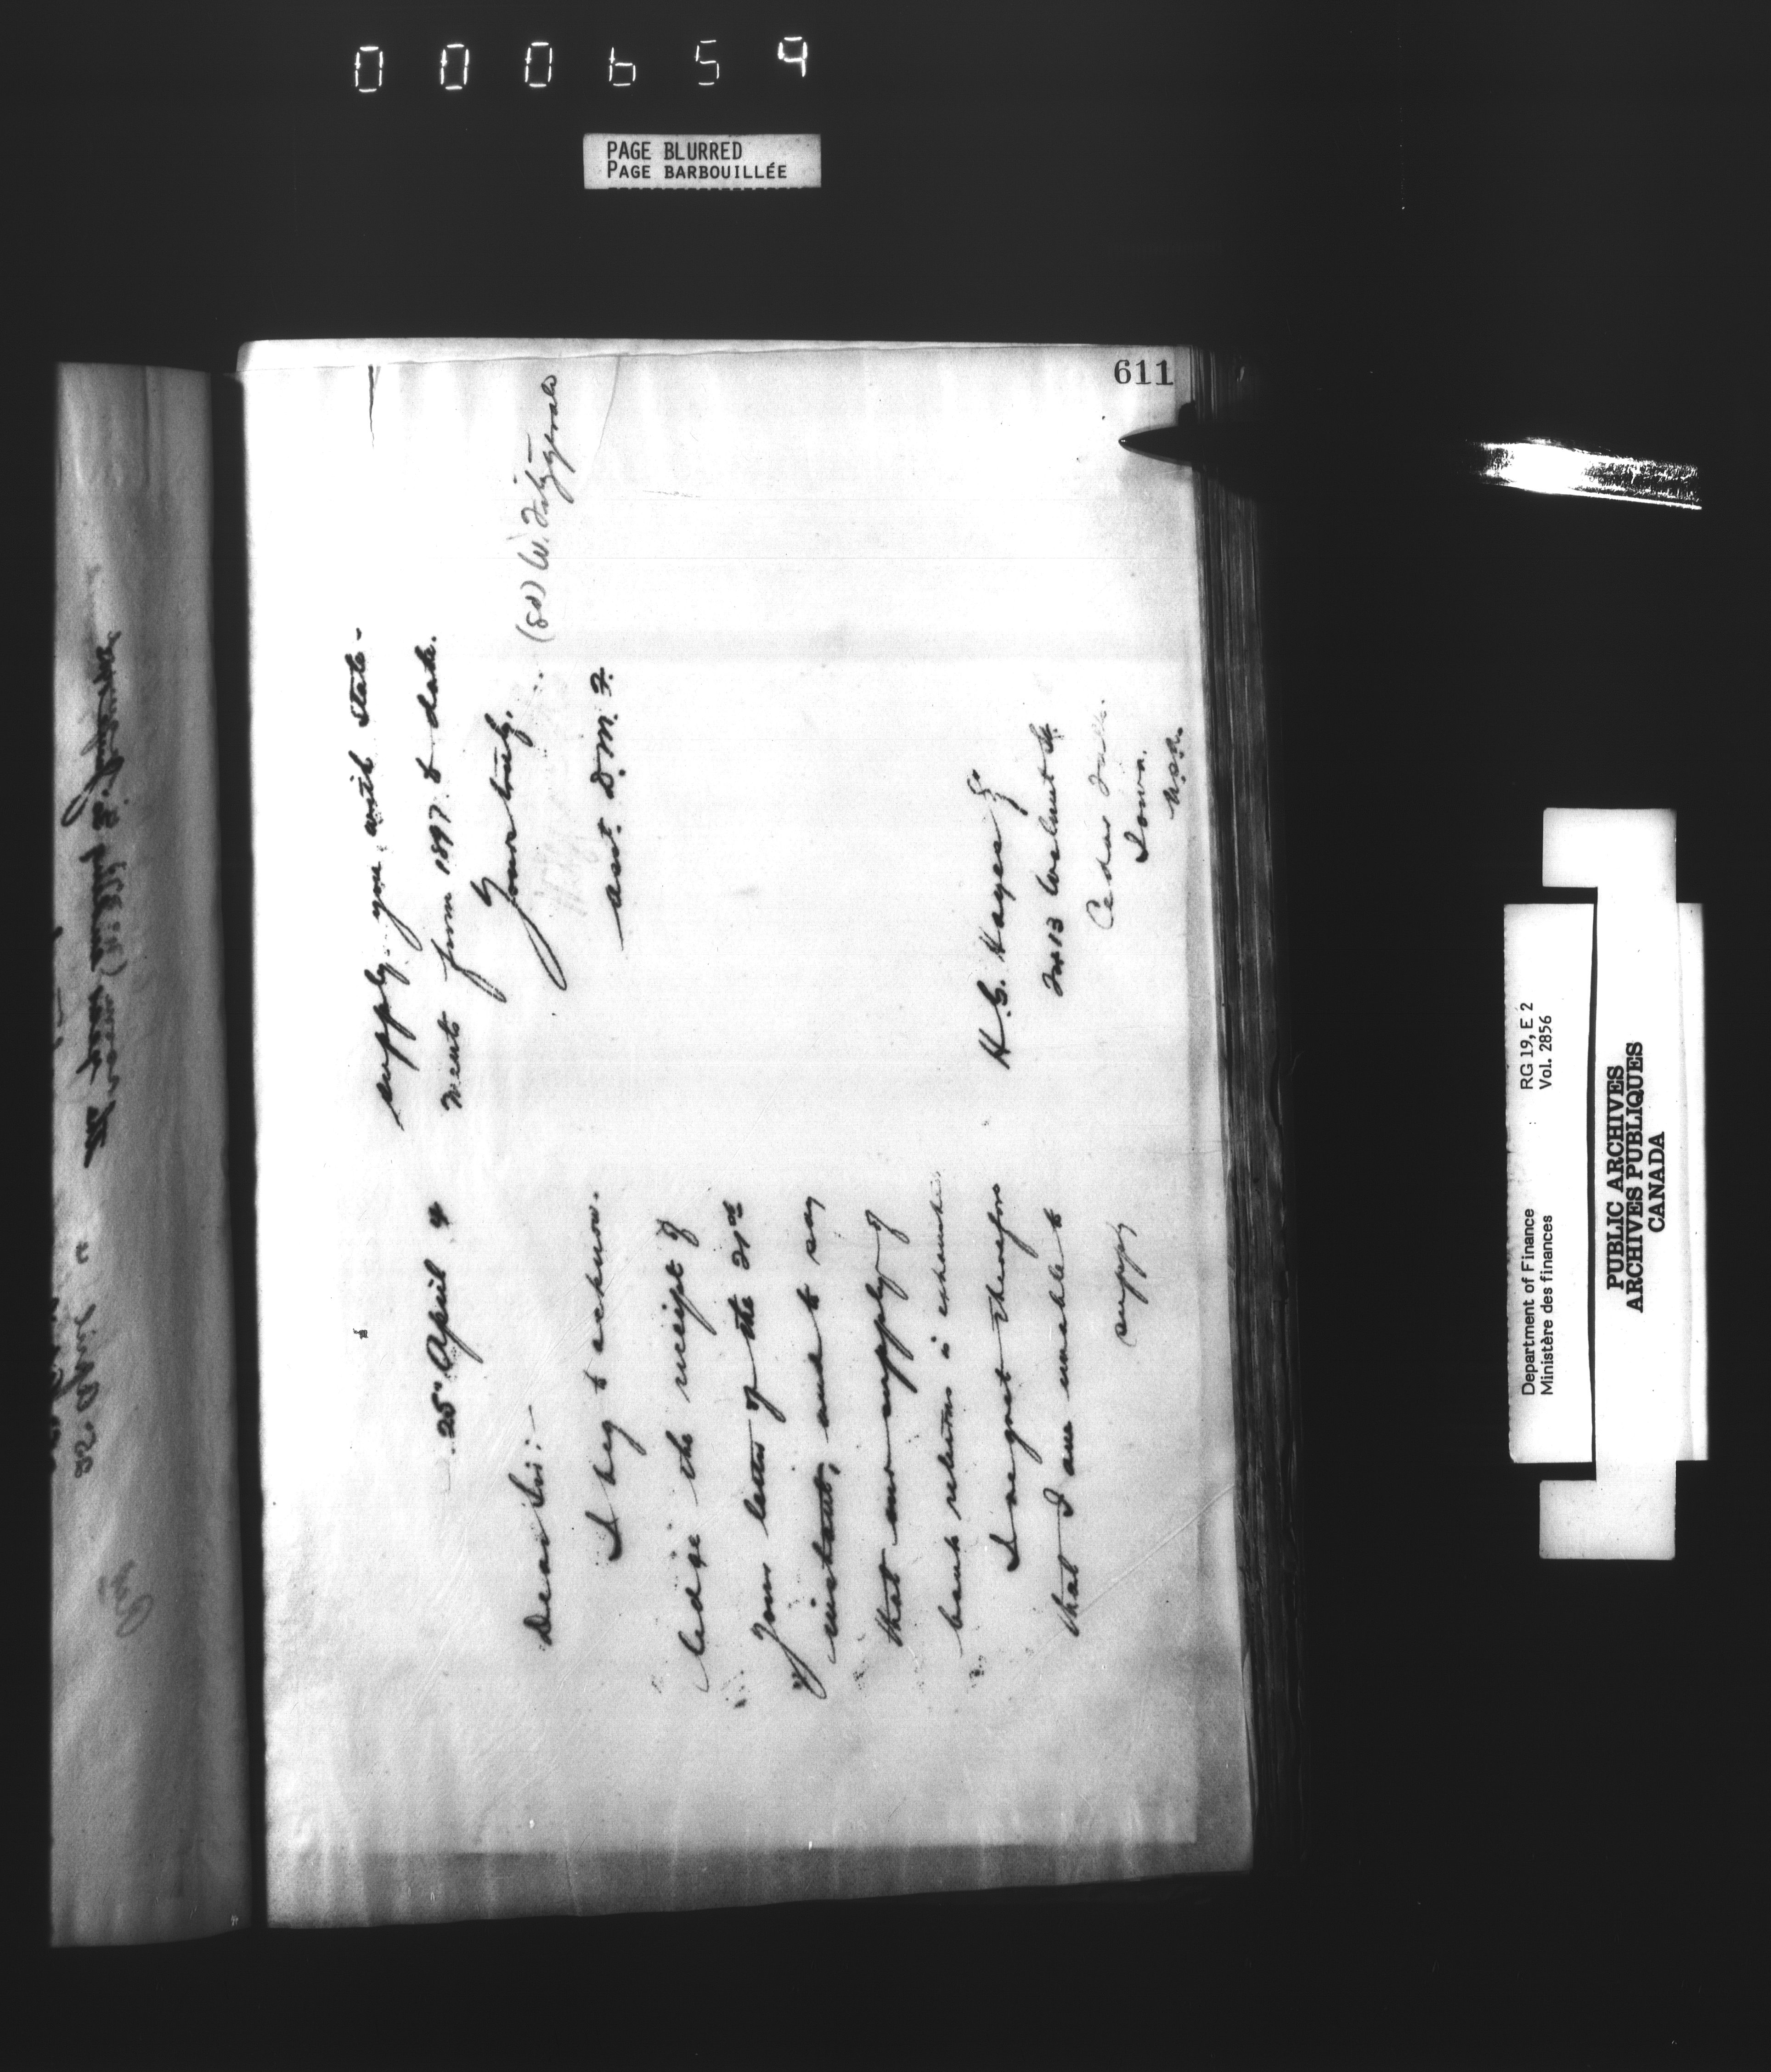 000659
PAGE BLURRED
PAGE BARBOUILLÉE
611
25 April 4
Dear Sir:-
I beg to acknow-
ledge the receipt of
your letter of the 21st
instant, and to say
that our supply of
bank returns is exhausted
I regret therefore
that I am unable to
supply
supply you with state-
ment from 1897 to date.
Yours truly,
(sd) W. Fitzgerald
asst. D.M.F.
H.C. Hayes Esq
No 13 Walnut St.
Cedar Falls.
Iowa.
U.S.A.
Department of Finance RG 19, E 2
Ministère des finances Vol. 2856
PUBLIC ARCHIVES
ARCHIVES PUBLIQUES
CANADA